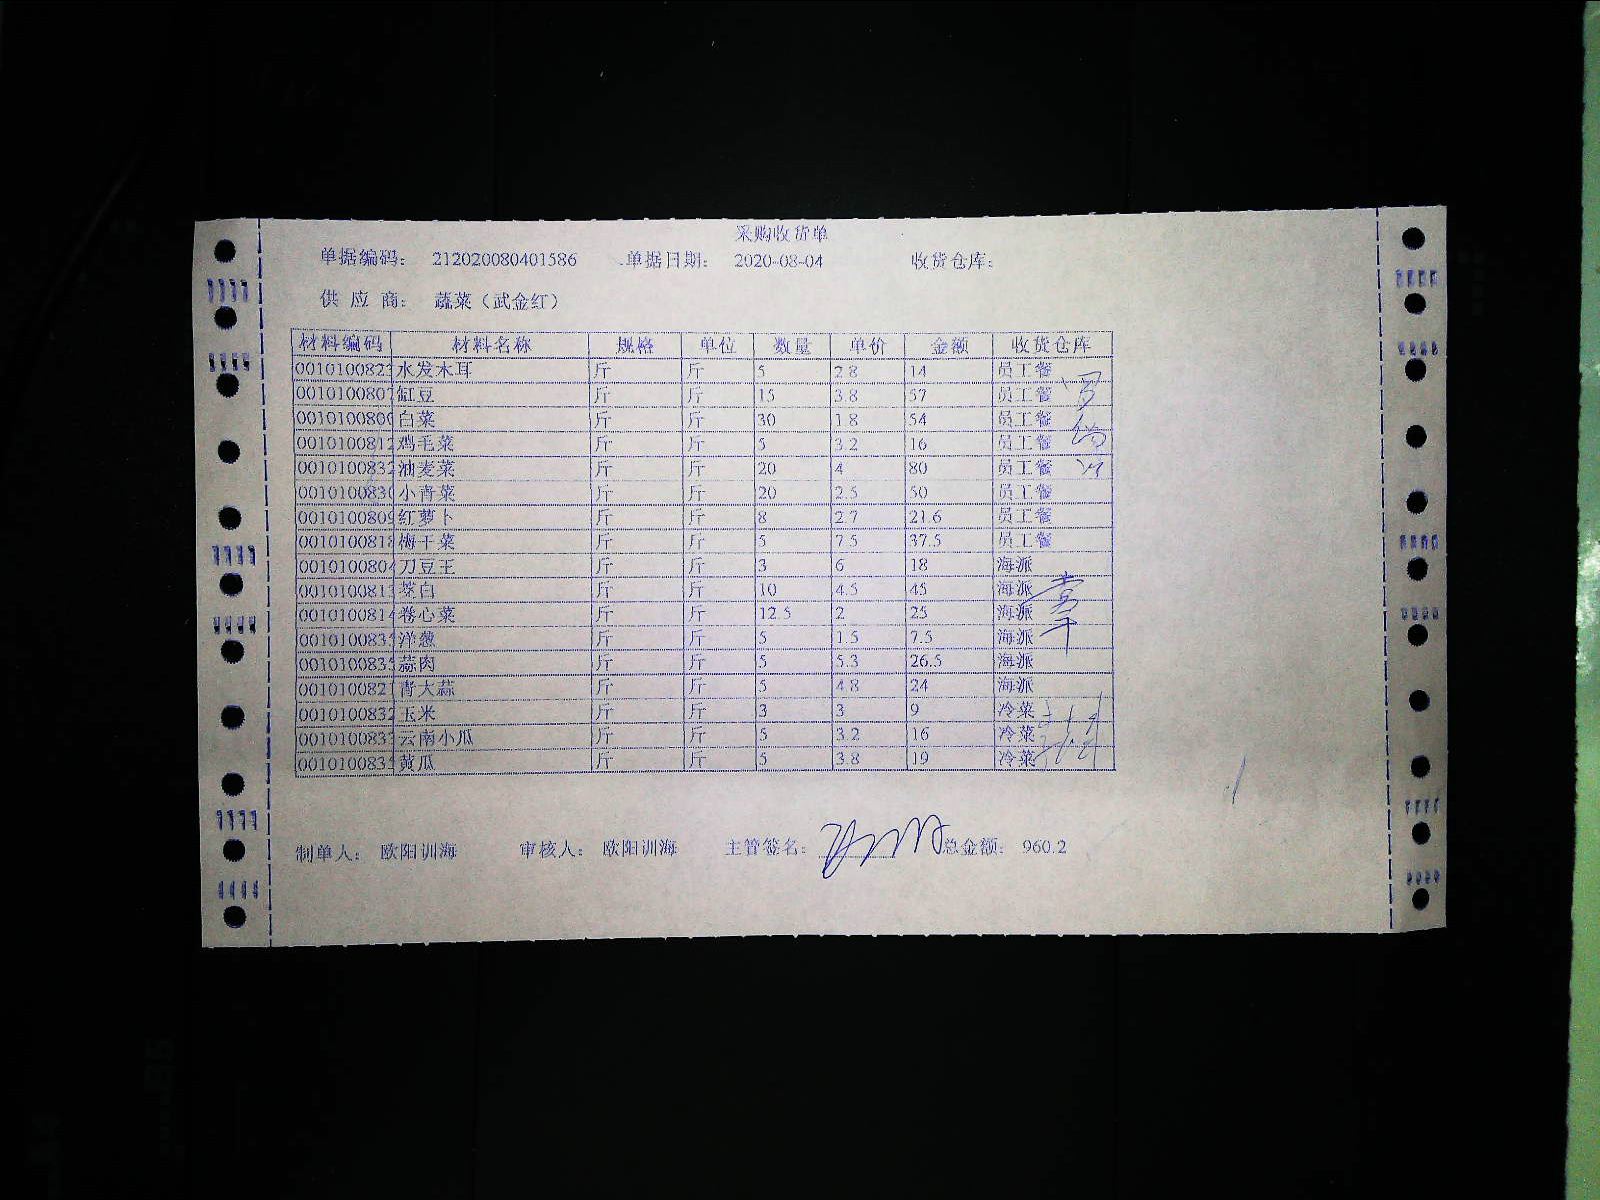 采购收货单
单据编码： 212020080401586 单据日期： 2020-08-04 收货仓库：
供 应 商： 蔬菜（武金红）
材料编码 材料名称 规格 单位 数量 单价 金额 收货仓库
0010100823 水发木耳 斤 斤 5 2.8 14 员工餐
0010100807 豇豆 斤 斤 15 3.8 57 员工餐
0010100800 白菜 斤 斤 30 1.8 54 员工餐
0010100812 鸡毛菜 斤 斤 5 3.2 16 员工餐
0010100832 油麦菜 斤 斤 20 4 80 员工餐
0010100830 小青菜 斤 斤 20 2.5 50 员工餐
0010100809 红萝卜 斤 斤 8 2.7 21.6 员工餐
0010100818 梅干菜 斤 斤 5 7.5 37.5 员工餐
0010100804 刀豆王 斤 斤 3 6 18 海派
0010100813 茭白 斤 斤 10 4.5 45 海派
0010100814 卷心菜 斤 斤 12.5 2 25 海派
001010083 洋葱 斤 斤 5 1.5 7.5 海派
001010083 蒜肉 斤 斤 5 5.3 26.5 海派
001010082 青大蒜 斤 斤 5 4.8 24 海派
0010100832 玉米 斤 斤 3 3 9 冷菜
001010083 云南小瓜 斤 斤 5 3.2 16 冷菜
001010083 黄瓜 斤 斤 5 3.8 19 冷菜
制单人： 欧阳训海 审核人： 欧阳训海 主管签名： 总金额： 960.2